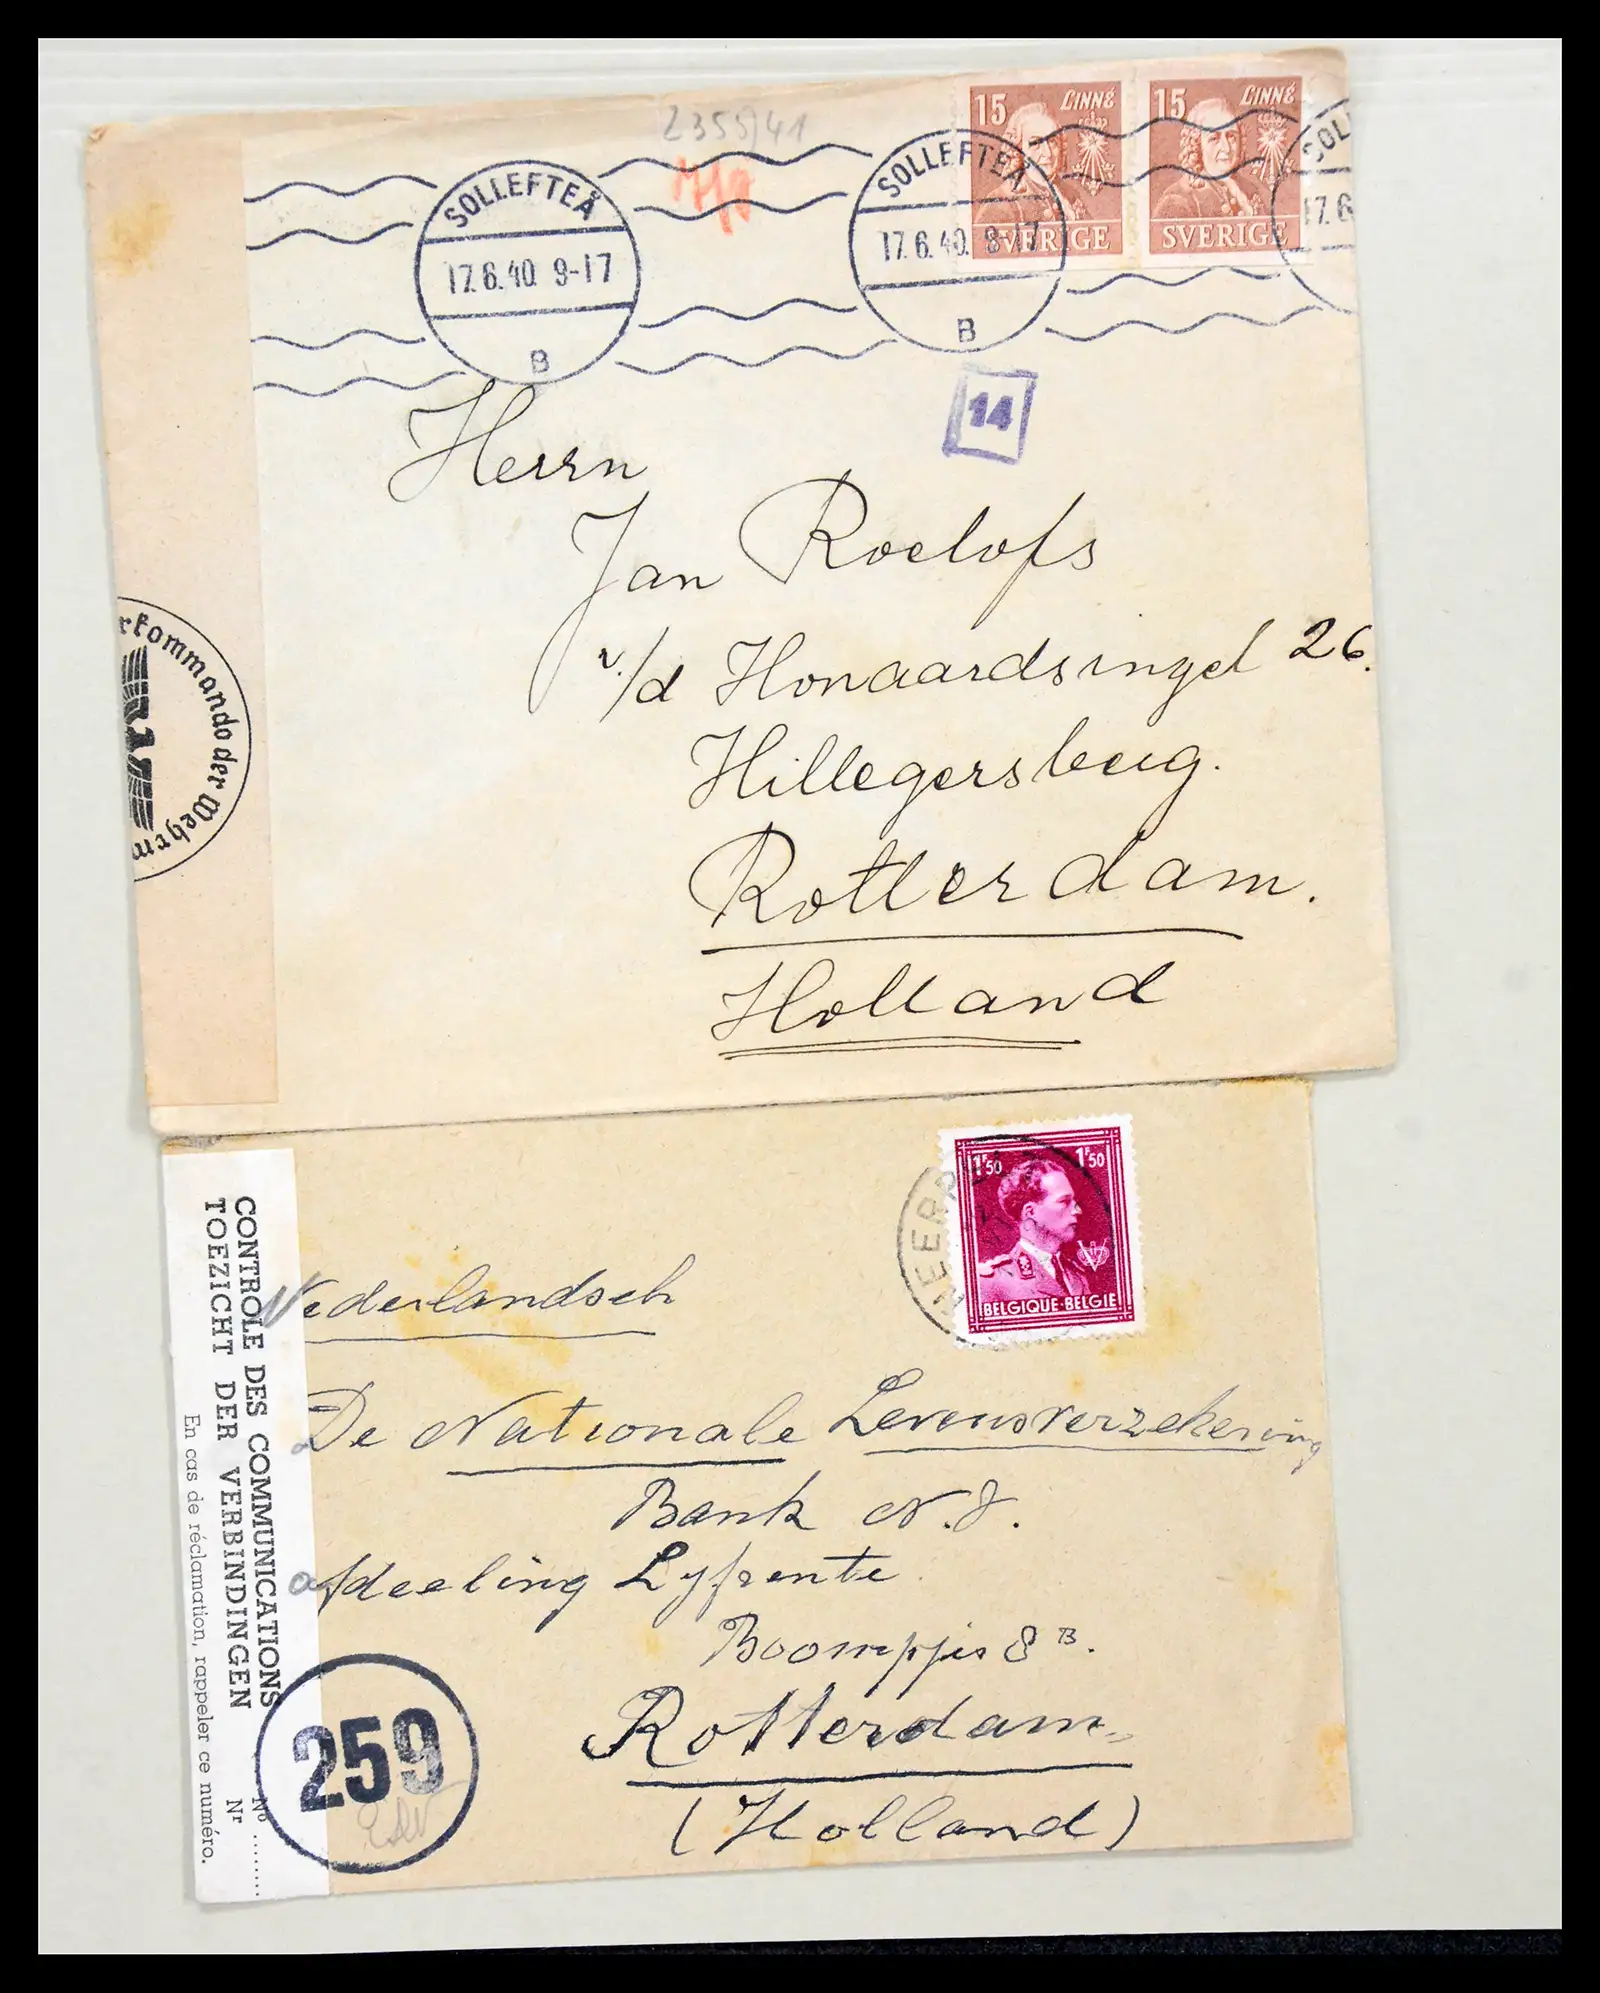 2355/41
15 LINNÉ
SVERIGE
15 LINNÉ
SVERIGE
SOLLEFTEÅ
17.6.40. 9-17
B
SOLLEFTEÅ
17.6.40. 8-17
B
SOL
17.6
14
Herrn
Jan Roelofs
v/d Honaardsingel 26.
Hillegersberg.
Rotterdam.
Holland
rkommando der Wehrm
1F50 1F50
BELGIQUE-BELGIE
CONTROLE DES COMMUNICATIONS Nº ........
TOEZICHT DER VERBINDINGEN Nr
En cas de réclamation, rappeler ce numéro.
259
Nederlandsch
De Nationale Levensverzekering
Bank N.V.
afdeeling Lyfrente
Boompjis 8B.
Rotterdam
(Holland)